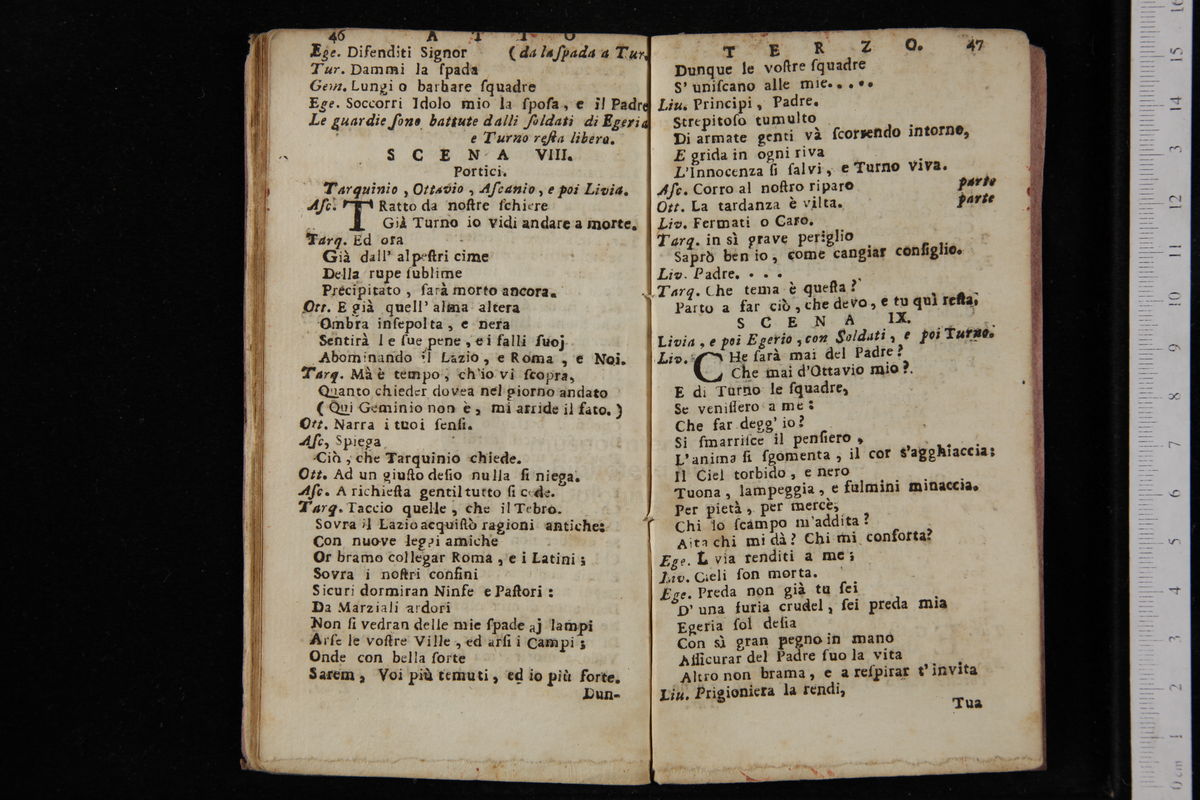 46 A T T O
Ege. Difenditi Signor (da la ſpada a Tur.
Tur. Dammi la ſpada
Gem. Lungi o barbare ſquadre
Ege. Soccorri Idolo mio la ſpoſa, e il Padre
Le guardie ſono battute dalli ſoldati di Egeria
e Turno reſta libero.
S C E N A VIII.
Portici.
Tarquinio, Ottavio, Aſcanio, e poi Livia.
Aſc. TRatto da noſtre ſchiere
Già Turno io vidi andare a morte.
Tarq. Ed ora
Già dall' alpeſtri cime
Della rupe ſublime
Precipitato, ſarà morto ancora.
Ott. E già quell' alma altera
Ombra inſepolta, e nera
Sentirà le ſue pene, e i falli ſuoj
Abominando il Lazio, e Roma, e Noi.
Tarq. Mà è tempo, ch'io vi ſcopra,
Quanto chieder dovea nel giorno andato
(Qui Geminio non è, mi arride il fato.)
Ott. Narra i tuoi ſenſi.
Aſc, Spiega
Ciò, che Tarquinio chiede.
Ott. Ad un giuſto deſio nulla ſi niega.
Aſc. A richieſta gentil tutto ſi cede.
Tarq. Taccio quelle, che il Tebro.
Sovra il Lazio acquiſtò ragioni antiche:
Con nuove leggi amiche
Or bramo collegar Roma, e i Latini;
Sovra i noſtri confini
Sicuri dormiran Ninfe e Paſtori:
Da Marziali ardori
Non ſi vedran delle mie ſpade aj lampi
Arſe le voſtre Ville, ed arſi i Campi;
Onde con bella ſorte
Sarem, Voi più temuti, ed io più forte.
Dun-
T E R Z O. 47
Dunque le voſtre ſquadre
S' uniſcano alle mie.....
Liu. Principi, Padre.
Strepitoſo tumulto
Di armate genti và ſcorrendo intorno,
E grida in ogni riva
L'Innocenza ſi ſalvi, e Turno viva.
Aſc. Corro al noſtro riparo parte
Ott. La tardanza è viltа. parte
Liv. Fermati o Caro.
Tarq. in sì grave periglio
Saprò ben io, come cangiar conſiglio.
Liv. Padre. . . .
Tarq. Che tema è queſta?
Parto a far ciò, che devo, e tu quì reſta;
S C E N A IX.
Livia, e poi Egerio, con Soldati, e poi Turno.
Liv. CHe ſarà mai del Padre?
Che mai d'Ottavio mio?.
E di Turno le ſquadre,
Se veniſſero a me:
Che far degg' io?
Si ſmarriſce il penſiero,
L'anima ſi ſgomenta, il cor s'agghiaccia;
Il Ciel torbido, e nero
Tuona, lampeggia, e fulmini minaccia.
Per pietà, per mercè;
Chi lo ſcampo m'addita?
Aita chi mi dà? Chi mi conforta?
Ege. L via renditi a me;
Liv. Cieli ſon morta.
Ege. Preda non già tu ſei
D' una furia crudel, ſei preda mia
Egeria ſol deſia
Con sì gran pegno in mano
Aſſicurar del Padre ſuo la vita
Altro non brama, e a reſpirar t' invita
Liu. Prigioniera la rendi,
Tua